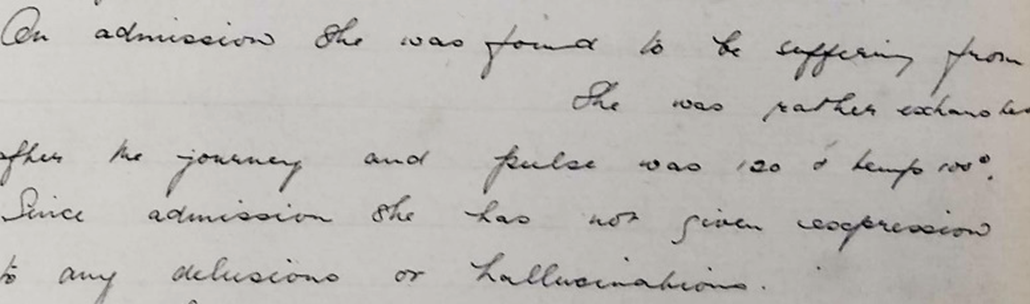 On admission she was found to be suffering from
She was rather exhausted
after the journey and pulse was 120 & temp 100°.
Since admission she has not given expression
to any delusions or hallucinations.